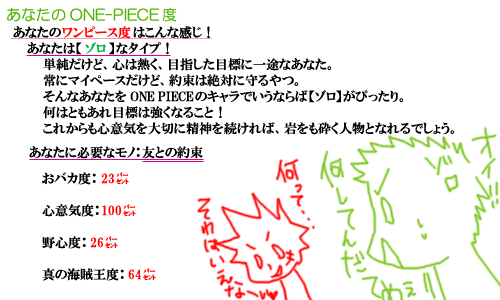 あなたの ONE-PIECE 度
あなたのワンピース度 はこんな感じ！
あなたは【 ゾロ 】なタイプ！
単純だけど、心は熱く、目指した目標に一途なあなた。
常にマイペースだけど、約束は絶対に守るやつ。
そんなあなたを ONE PIECE のキャラでいうならば【ゾロ】がぴったり。
何はともあれ目標は強くなること！
これからも心意気を大切に精神を続ければ、岩をも砕く人物となれるでしょう。
あなたに必要なモノ：友との約束
おバカ度： 23 ㌫
心意気度： 100 ㌫
野心度： 26 ㌫
真の海賊王度： 64 ㌫
オイ
ゾロ
何してんだてめぇ!!
何って…
それはいえな～い